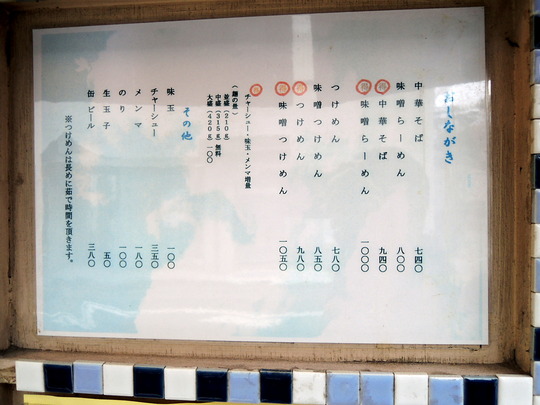 おしながき
中華そば 七四〇
味噌らーめん 八〇〇
得 中華そば 九四〇
得 味噌らーめん 一〇〇〇
つけめん 七八〇
味噌つけめん 八五〇
得 つけめん 九八〇
得 味噌つけめん 一〇五〇
得 チャーシュー・味玉・メンマ増量
(麺の量)
並盛(210g)
中盛(315g)無料
大盛(420g)一〇〇
その他
味玉 一〇〇
チャーシュー 三五〇
メンマ 一八〇
のり 一〇〇
生玉子 五〇
缶ビール 三八〇
※つけめんは長めに茹で時間を頂きます。